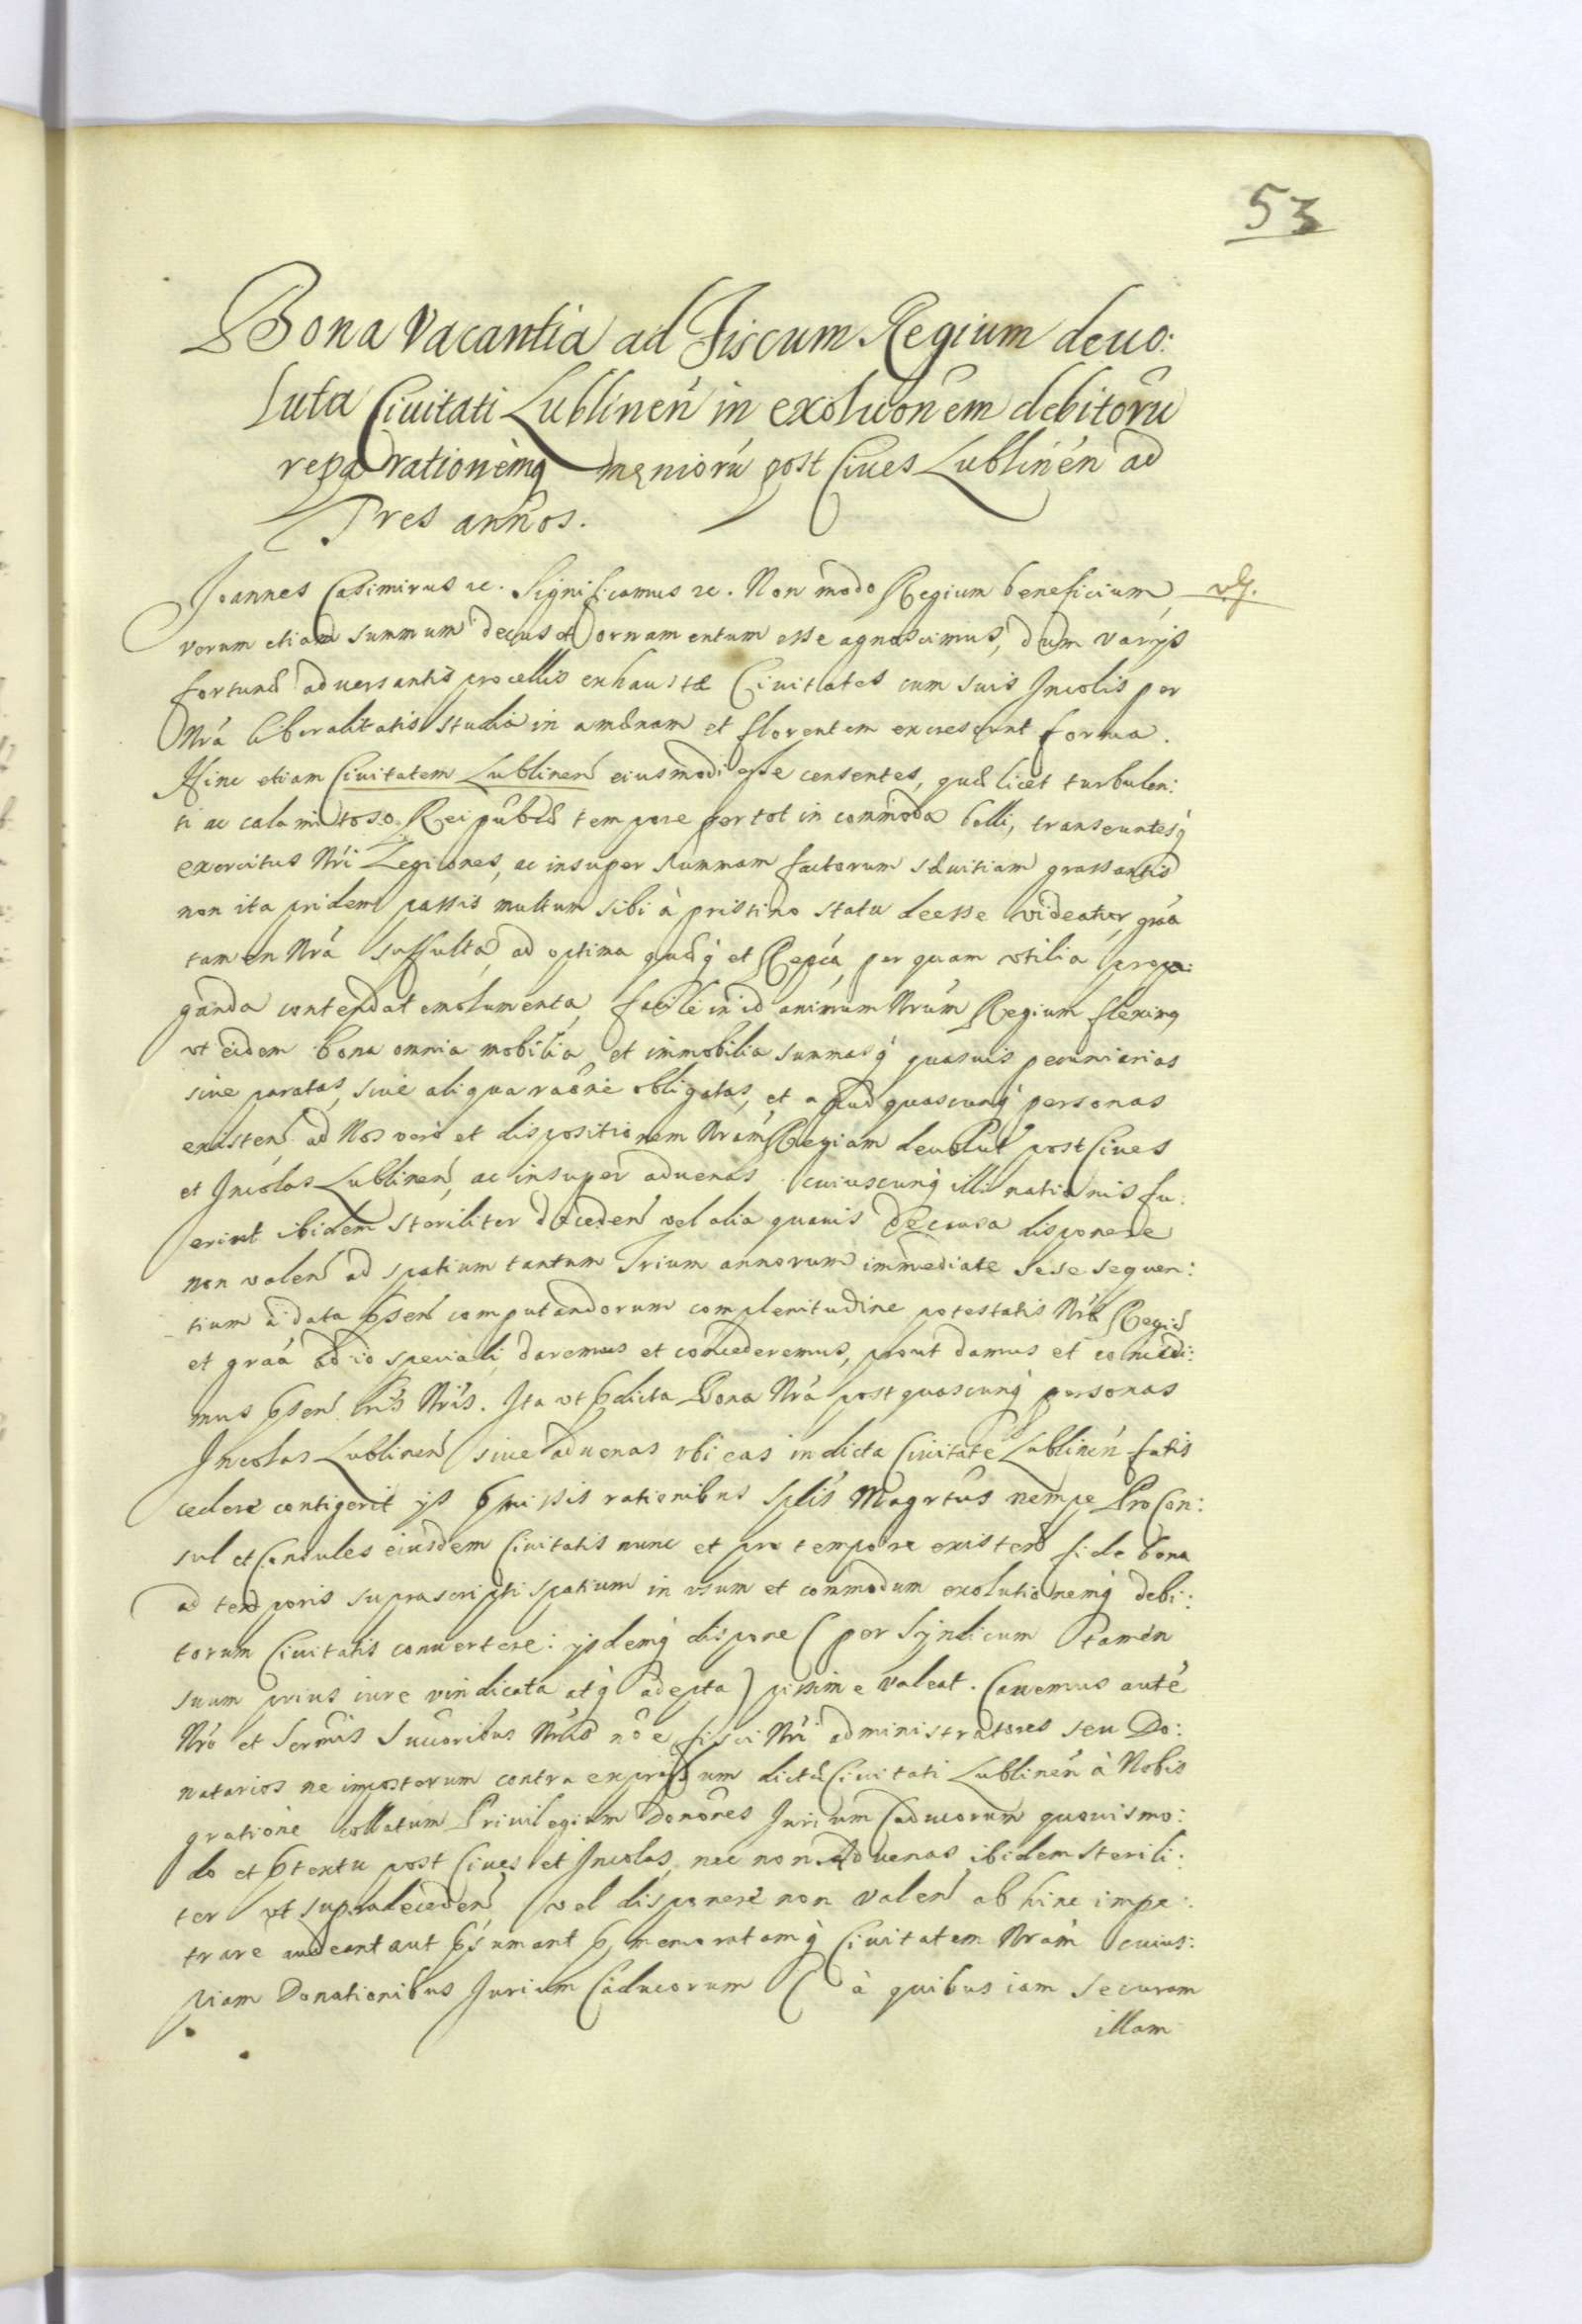 53
Bona Vacantia ad Fiscum Regium deuo:
luta Ciuitati Lublinen̄ in exoluōnem debitorū
reparationemq́ męniorū post Ciues Lublinén ad
Tres annos.
Joannes Casimirus ꝛc. Significamus ꝛc. Non modo Regium beneficium,
verum etiam summum decus et ornamentum esse agnoscimus, dum varijs
fortunæ aduersantis procellis exhaustæ Ciuitates cum suis Incolis per
Nrá liberalitatis studia in amænam et florentem excrescunt forma.
Hinc etiam Ciuitatem Lublinen̄ eiusmodi esse censentes, quæ licet turbulen:
ti ac calamitoso Reipublæ tempore per tot incommoda belli, transeuntesq́
exercitus Nrí Legiones, ac insuper summam factorum sæuitiam grassantis
non ita pridem passis multum sibi à pristino statu deesse videatur, grá
tamen Nrá suffulta, ad optima quæq́ et Reipcá perquam vtilia propa:
ganda contendat emolumenta, facile in id animum Nrúm Regium fleximq
vt eidem bona omnia mobilia, et immobilia summasq́ quasuis pecuniarias
siue paratas, siue aliqua raōne obligatas, et apud quascunq́ personas
existen̄ ad Nos veró et dispositionem Nrám Regiam deuolut́ post Ciues
et Incolas Lublinen̄, ac insuper aduenas cuiuscunq́ illi nationis fu:
erint ibidem steriliter deceden̄ vel alia quauis de causa disponere
non valen̄ ad spatium tantum Trium annorum immediate sese sequen:
tium à data p̄sen̄ computandorum complenitudine potestatis Nrǽ Regiæ
et graá ad id speciali daremus et concederemus, prout damus et concedi:
mus p̄sen̄ lrís Nrís. Ita vt p̄dicta Bona Nrá post quascunq́ personas
Incolas Lublinen̄ siue aduenas vbi eas in dicta Ciuitate Lublinén fatis
cedere contigerit ijs p̄missis rationibus Splīs Magrtūs nempe ProCon:
sul et Consules eiusdem Ciuitatis nunc et pro tempore existen̄ fide bona
ad temporis suprascripti spatium in vsum et commodum exolutionemq́ debi:
torum Ciuitatis conuertere: ijsdemq́ dispone (per Syndicum tamen
suum prius iure vindicata atq́ adepta) pissime valeat. Cauemus auté
Nró et Sermīs Succoribus Nrís nōe fisci Nrí administratores seu Do:
natarios ne imposterum contra expressum dictæ Ciuitati Lublinén à Nobis
gratiōne collatum Priuilegium Donōnes Jurium Caducorum quouismo:
do et p̄textu post Ciues et Incolas, nec non Aduenas ibidem sterili:
ter vt supra deceden̄ vel disponere non valen̄ abhinc impe:
trare audeant aut p̄sumant p̄memoratamq́ Ciuitatem Nrám cuius:
piam Donationibus Jurium Caducorum (à quibus iam securam
illam